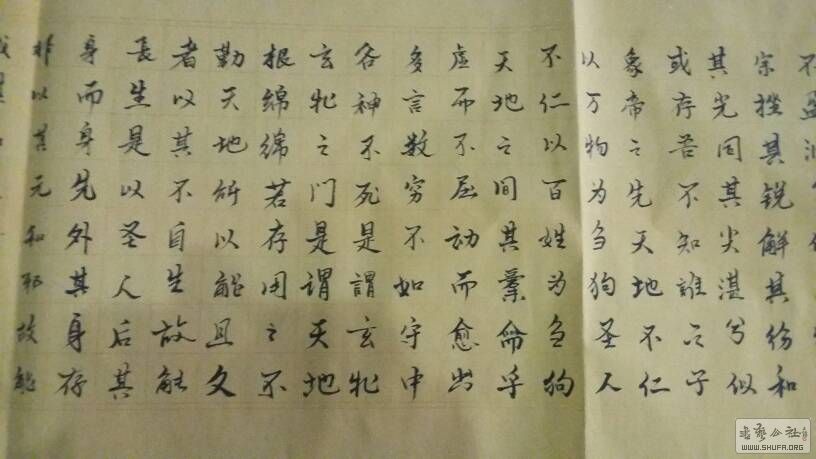 不盈
宗挫其锐解其纷和
其光同其尘湛兮似
或存吾不知誰之子
象帝之先天地不仁
以万物为刍狗圣人
不仁以百姓为刍狗
天地之间其橐龠乎
虚而不屈动而愈出
多言数穷不如守中
谷神不死是謂玄牝
玄牝之门是谓天地
根绵绵若存用之不
勤天地所以能且久
者以其不自生故能
長生是以圣人后其
身而身先外其身存
非以其无私邪故能
成其
书艺公社
WWW.SHUFA.ORG